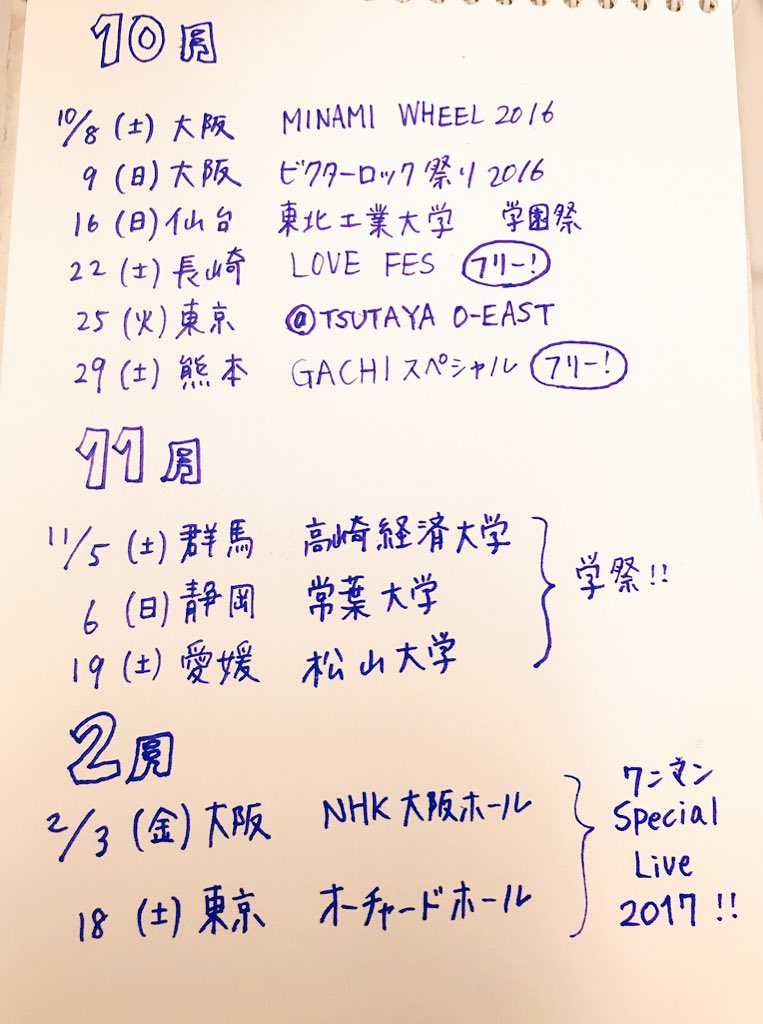 10月
10/8 (土) 大阪 MINAMI WHEEL 2016
9 (日) 大阪 ビクターロック祭り 2016
16 (日) 仙台 東北工業大学 学園祭
22 (土) 長崎 LOVE FES フリー!
25 (火) 東京 @TSUTAYA O-EAST
29 (土) 熊本 GACHIスペシャル フリー!
11月
11/5 (土) 群馬 高崎経済大学
6 (日) 静岡 常葉大学
19 (土) 愛媛 松山大学
学祭!!
2月
2/3 (金) 大阪 NHK大阪ホール
18 (土) 東京 オーチャードホール
ワンマン
Special
Live
2017!!